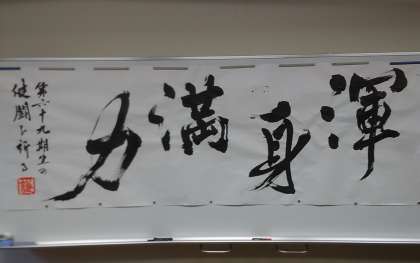 渾身満力
第六十九期生の
健闘を祈る